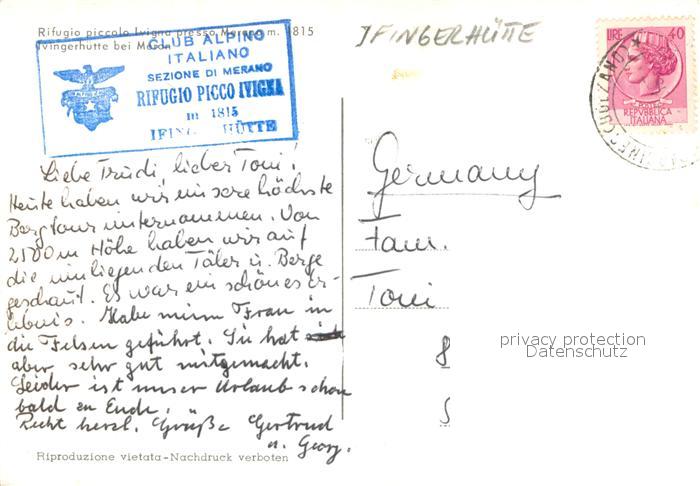 Rifugio piccolo Ivigna presso Merano m. 1815
Ivingerhutte bei Meran
CLUB ALPINO
ITALIANO
SEZIONE DI MERANO
RIFUGIO PICCO IVIGNA
m 1815
IFING HÜTTE
IFINGERHÜTTE
LIRE 40
POSTE
REPVBBLICA
ITALIANA
Liebe Trudi, lieber Toni!
Heute haben wir unsere höchste
Bergtour unternommen. Von
2100m Höhe haben wir auf
die umliegenden Täler u. Berge
geschaut. Es war ein schönes Er-
lebnis. Habe meine Frau in
die Felsen geführt. Sie hat
aber sehr gut mitgemacht.
Leider ist unser Urlaub schon
bald zu Ende.
Recht herzl. Grüße Gertrud
u. Georg.
Germany
Fam.
Toni
privacy protection
Datenschutz
Riproduzione vietata-Nachdruck verboten